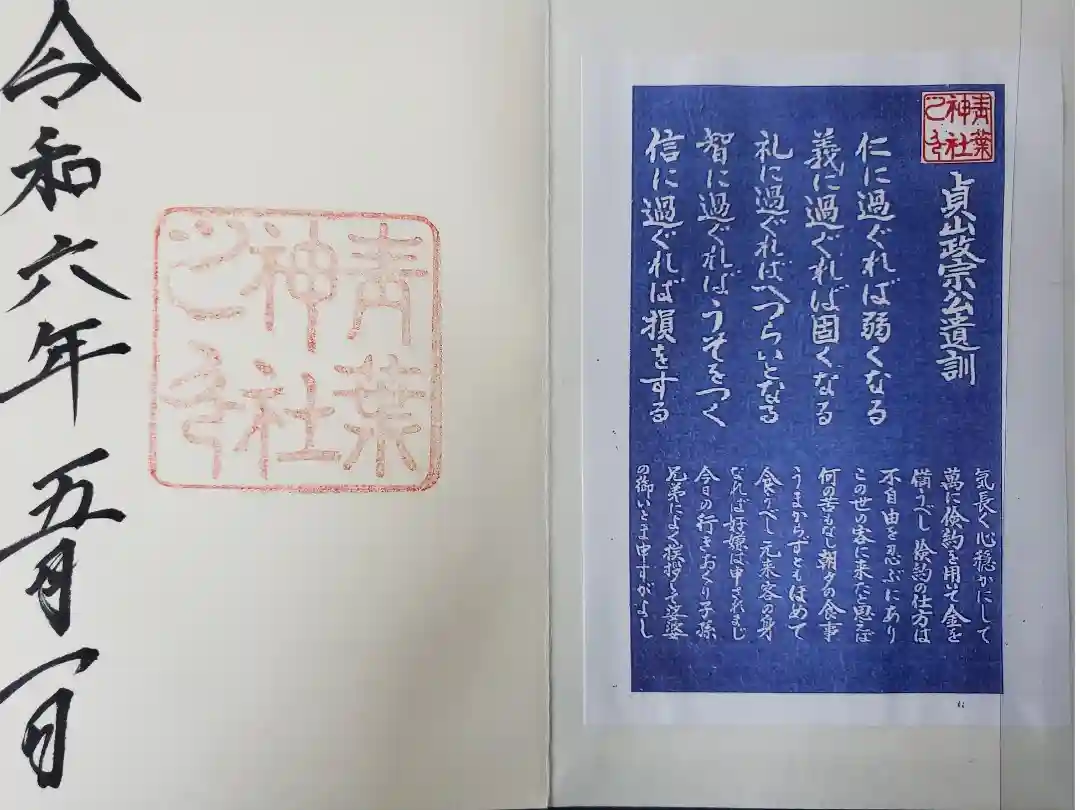 青葉
神社
之印
貞山政宗公遺訓
仁に過ぐれば弱くなる
義に過ぐれば固くなる
礼に過ぐればへつらいとなる
智に過ぐればうそをつく
信に過ぐれば損をする
気長く心穏かにして
萬に倹約を用いて金を
備うべし 倹約の仕方は
不自由を忍ぶにあり
この世の客に来たと思えば
何の苦もなし朝夕の食事
うまからずともほめて
食うべし 元来客の身
なれば好嫌は申されまじ
今日の行きおくり子孫
兄弟によく挨拶して娑婆
の御いとま申すがよし
青葉
神社
之印
令和六年五月一日